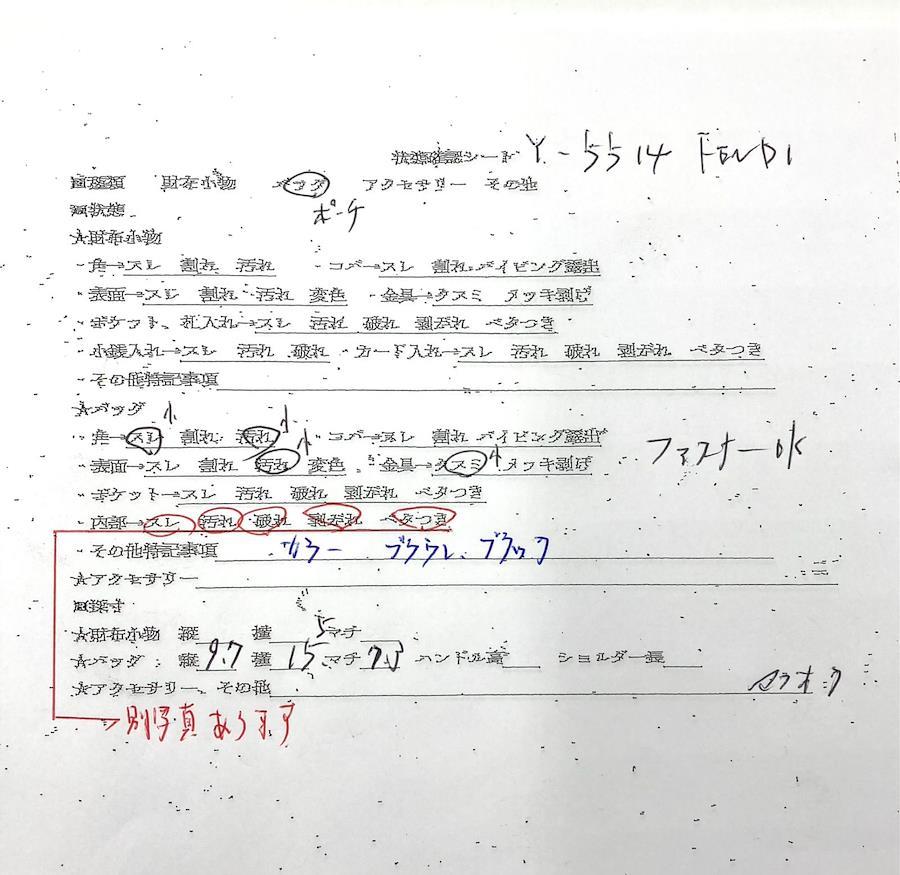 状態確認シート Y-5514 FENDI
■種類 財布小物 バッグ アクセサリー その他
ポーチ
■状態
★財布小物
・角→スレ 割れ 汚れ ・コバ→スレ 割れ パイピング露出
・表面→スレ 割れ 汚れ 変色 ・金具→クスミ メッキ剥げ
・ポケット、札入れ→スレ 汚れ 破れ 剥がれ ベタつき
・小銭入れ→スレ 汚れ 破れ ・カード入れ→スレ 汚れ 破れ 剥がれ ベタつき
・その他特記事項
★バッグ 小 小
・角→スレ 割れ 汚れ ・コバ→スレ 割れ パイピング露出
小 小 ファスナーOK
・表面→スレ 割れ 汚れ 変色 ・金具→クスミ メッキ剥げ
・ポケット→スレ 汚れ 破れ 剥がれ ベタつき
・内部→スレ 汚れ 破れ 剥がれ ベタつき
・その他特記事項 カラー ブラウン、ブラック
★アクセサリー
■採寸
★財布小物 縦 横 マチ
★バッグ:縦 9.7 横 15.5 マチ ハンドル高 ショルダー長
★アクセサリー、その他
別写真あります